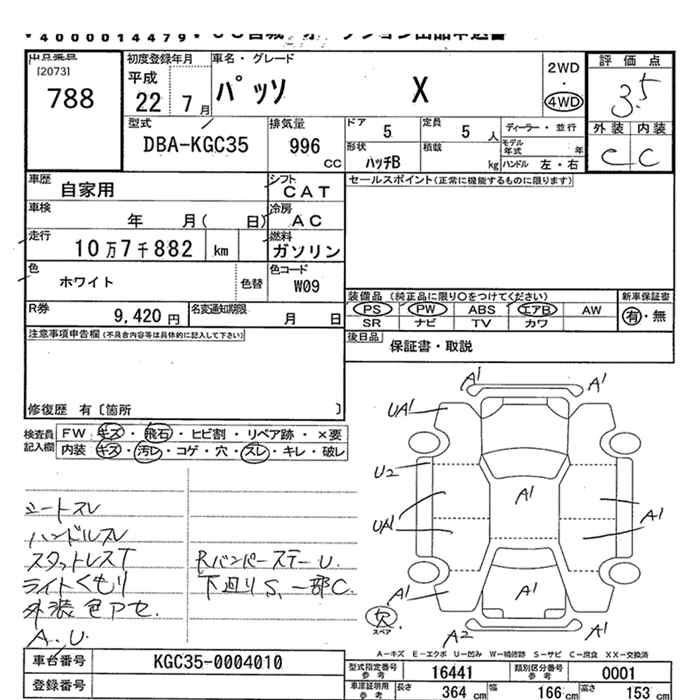 4000014479
出品番号 初度登録年月 車名・グレード 2WD 評価点
[2073] 平成 パッソ X ・ 3.5
788 22 7月 4WD 外装 内装
型式 排気量 ドア 5 定員 5人 ディーラー・並行 C C
DBA-KGC35 996 CC 形状 ハッチB 積載 kg モデル年式 年
ハンドル 左・右
車歴 自家用 シフト CAT セールスポイント(正常に機能するものに限ります)
車検 年 月( 日) 冷房 AC
走行 10万7千882 km 燃料 ガソリン
色 ホワイト 色替 色コード W09
装備品(純正品に限り○をつけてください) 新車保証書
R券 9,420円 名変通知期限 月 日 PS PW ABS エアB AW 有・無
SR ナビ TV カワ
注意事項申告欄(不具合内容等は具体的に記入して下さい) 後日品 保証書・取説
修復歴 有〔箇所 〕
検査員記入欄 FW キズ・飛石・ヒビ割・リペア跡・×要
内装 キズ・汚レ・コゲ・穴・スレ・キレ・破レ
A1 A1
UA1
U2
A1
UA1 A1
A1 A1 A1
A2 A1
欠
スペア
シートスレ
ハンドルスレ
スタットレスT RバンパーステーU.
ライトくもり 下廻りS、一部C.
外装色アセ.
A.U
A-キズ E-エクボ U-凹み W-補修跡 S-サビ C-腐食 XX-交換済
車台番号 KGC35-0004010 型式指定番号 参考 16441 類別区分番号 参考 0001
登録番号 車庫証明用 参考 長さ 364 cm 幅 166 cm 高さ 153 cm